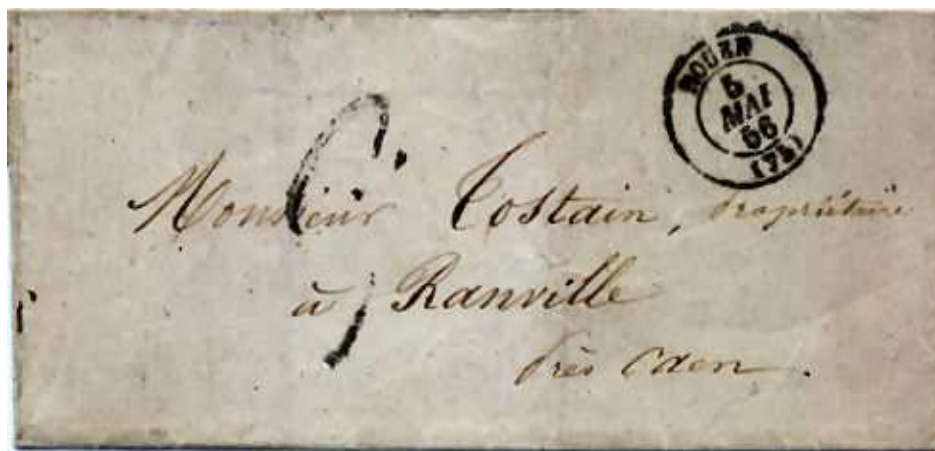 ROUEN
5
MAI
66
(74)
Monsieur Tostain, propriétaire
à Ranville
Près Caen.